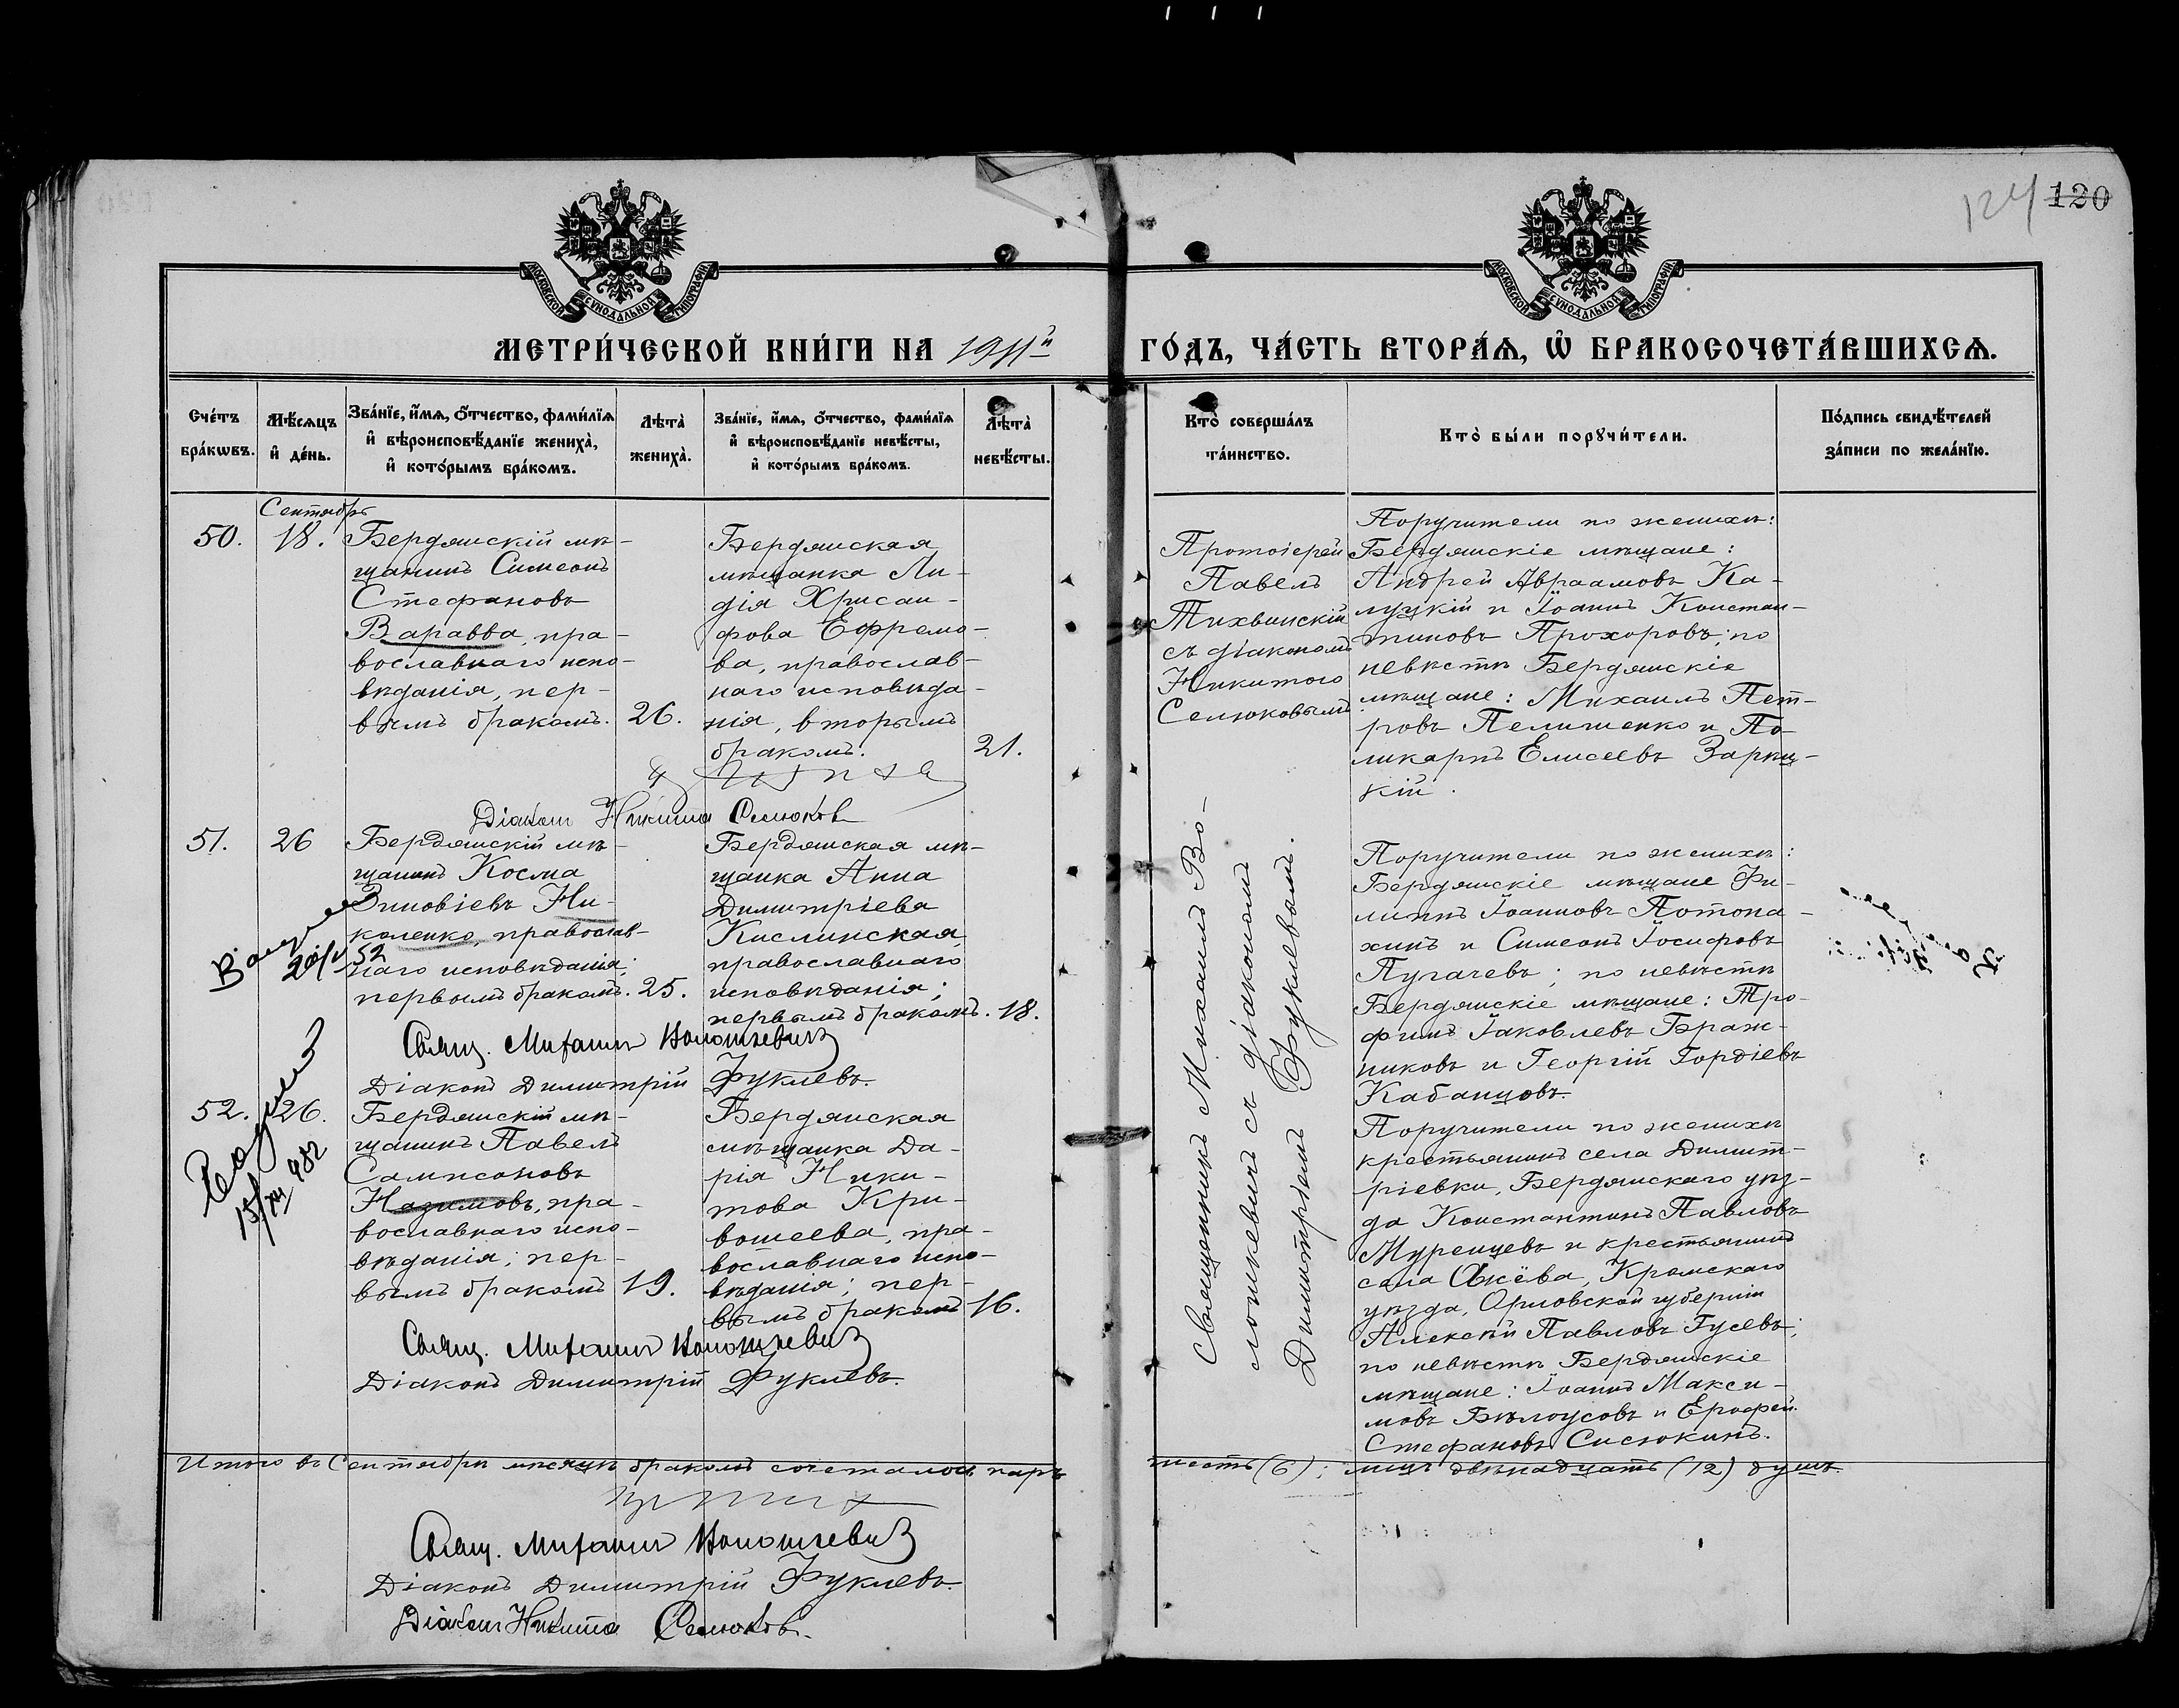 124 120
МОСКОВСКОЙ СѴНОДАЛЬНОЙ ТИПОГРАФІИ
МОСКОВСКОЙ СѴНОДАЛЬНОЙ ТИПОГРАФІИ
МЕТРИ́ЧЕСКОЙ КНИ́ГИ НА 1911й ГО́ДЪ, ЧА́СТЬ ВТОРА́Ѧ, Ѡ҆ БРАКОСОЧЕТА́ВШИХСѦ.
Сче́тъ бра́кѡвъ.
Мѣ́сѧцъ и҆ де́нь.
Зва́нїе, и҆́мѧ, ѻ҆́тчество, фами́лїѧ
и҆ вѣроисповѣ́данїе жениха̀,
и҆ кото́рымъ бра́комъ.
Лѣ́та̀ жениха̀.
Зва́нїе, и҆́мѧ, ѻ҆́тчество, фами́лїѧ
и҆ вѣроисповѣ́данїе невѣ́сты,
и҆ кото́рымъ бра́комъ.
Лѣ́та̀ невѣ́сты.
Кто̀ соверша́лъ
та́инство.
Кто̀ бы́ли порꙋчи́тели.
По́дпись свидѣ́телей
за́писи по жела́нїю.
Сентябрь
50. 18.
Бердянскій мѣ-
щанинъ Симеонъ
Стефановъ
Варавва, пра-
вославнаго испо-
вѣданія, пер-
вымъ бракомъ. 26.
Бердянская
мѣщанка Ли-
дія Хрисан-
фова Ефремо-
ва, православ-
наго исповѣда-
нія, вторымъ
бракомъ. 21.
Діаконъ Никита Селюковъ
Протоіерей
Павелъ
Тихвинскій
съ діакономъ
Никитою
Селюковымъ
Поручители по женихѣ:
Бердянскіе мѣщане:
Андрей Авраамовъ Ка-
луцкій и Іоаннъ Констан-
тиновъ Прохоровъ; по
невѣстѣ Бердянскіе
мѣщане: Михаилъ Пет-
ровъ Пелишенко и По-
ликарпъ Елисеевъ Зариц-
кій.
51. 26
Бердянскій мѣ-
щанинъ Косма
Зиновіевъ Ни-
коленко, православ-
наго исповѣданія;
первымъ бракомъ. 25.
52
Бердянская мѣ-
щанка Анна
Димитріева
Кислинская,
православнаго
исповѣданія;
первымъ бракомъ. 18.
Свящ. Михаилъ Волошкевичъ
Діаконъ Димитрій Фуклевъ.
Священникъ Михаилъ Во-
лошкевичъ съ діакономъ
Димитріемъ Фуклевымъ.
Поручители по женихѣ:
Бердянскіе мѣщане Фи-
липпъ Іоанновъ Потопа-
хинъ и Симеонъ Іосифовъ
Пугачевъ; по невѣстѣ
Бердянскіе мѣщане: Тро-
фимъ Іаковлевъ Браж-
никовъ и Георгій Гордіевъ
Кабанцовъ.
52. 26.
Бердянскій мѣ-
щанинъ Павелъ
Сампсоновъ
Назимовъ, пра-
вославнаго испо-
вѣданія; пер-
вымъ бракомъ 19.
Бердянская
мѣщанка Да-
рія Ники-
това Кри-
вошеева, пра-
вославнаго испо-
вѣданія; пер-
вымъ бракомъ 16.
Свящ. Михаилъ Волошкевичъ
Діаконъ Димитрій Фуклевъ.
Поручители по женихѣ
крестьянинъ села Димит-
ріевки, Бердянскаго уѣз-
да Константинъ Павловъ
Муренцевъ и крестьянинъ
села Кромскаго
уѣзда, Орловской губерніи
Алексѣй Павловъ Гусевъ;
по невѣстѣ Бердянскіе
мѣщане: Іоаннъ Макси-
мовъ Бѣлоусовъ и Ерофей
Стефановъ Сисюкинъ.
Итого въ Сентябрѣ мѣсяцѣ бракомъ сочеталось паръ шесть (6); лицъ двѣнадцать (12) душъ.
Свящ. Михаилъ Волошкевичъ
Діаконъ Димитрій Фуклевъ.
Діаконъ Никита Селюковъ.